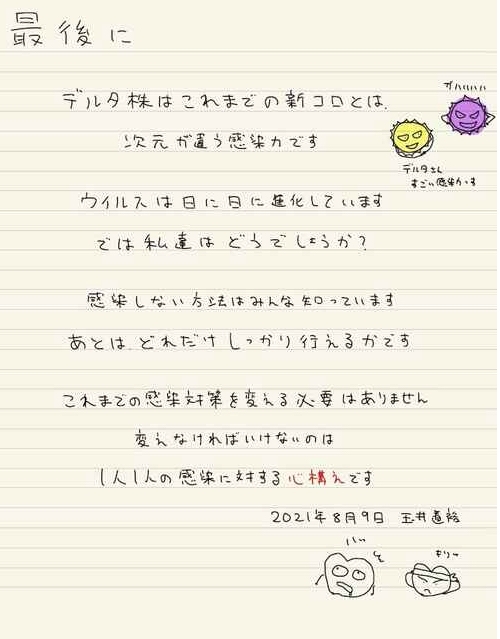 最後に
ガハハハハ
デルタ株はこれまでの新コロとは、
次元が違う感染力です
デルタさん
すごい感染力っす
ウイルスは日に日に進化しています
では私達はどうでしょうか？
感染しない方法はみんな知っています
あとは、どれだけしっかり行えるかです
これまでの感染対策を変える必要はありません
変えなければいけないのは
1人1人の感染に対する心構えです
2021年8月9日 玉井道裕
ハッ
キリッ